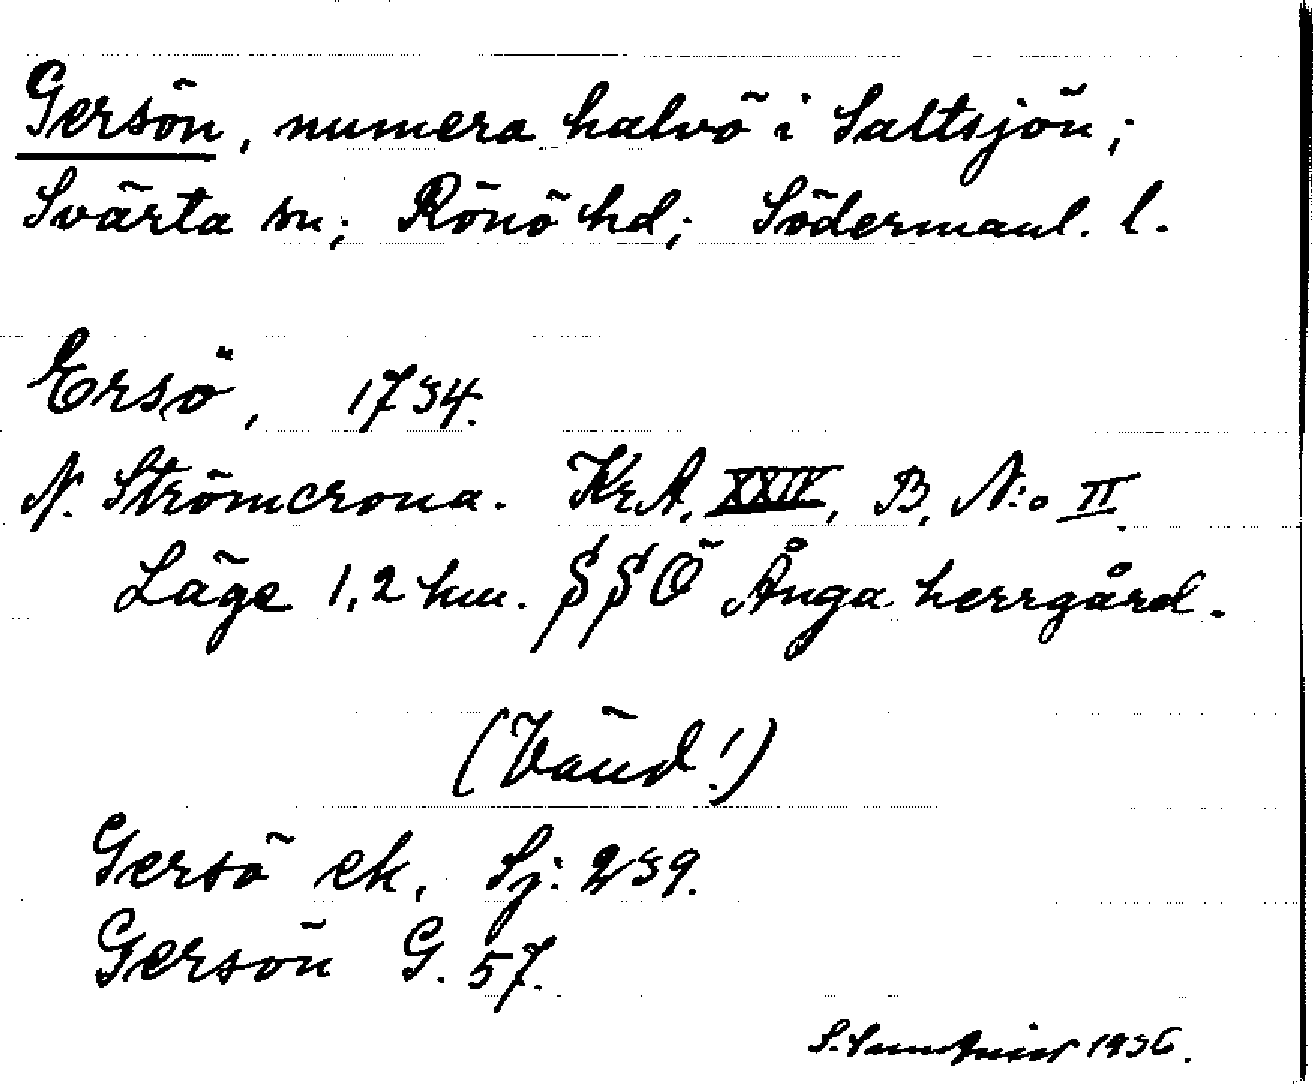 Gersön, numera halvö i Saltsjön;
Svärta sn; Rönö hd; Södermanl. l.
Ersö, 1734.
N. Strömcrona. Kr.A. XXIV, B, N:o II
Läge 1,2 km. SSÖ Ånga herrgård.
(Vänd!)
Gersö ek. Sj. 239.
Gersön G. 57.
S. 1936.